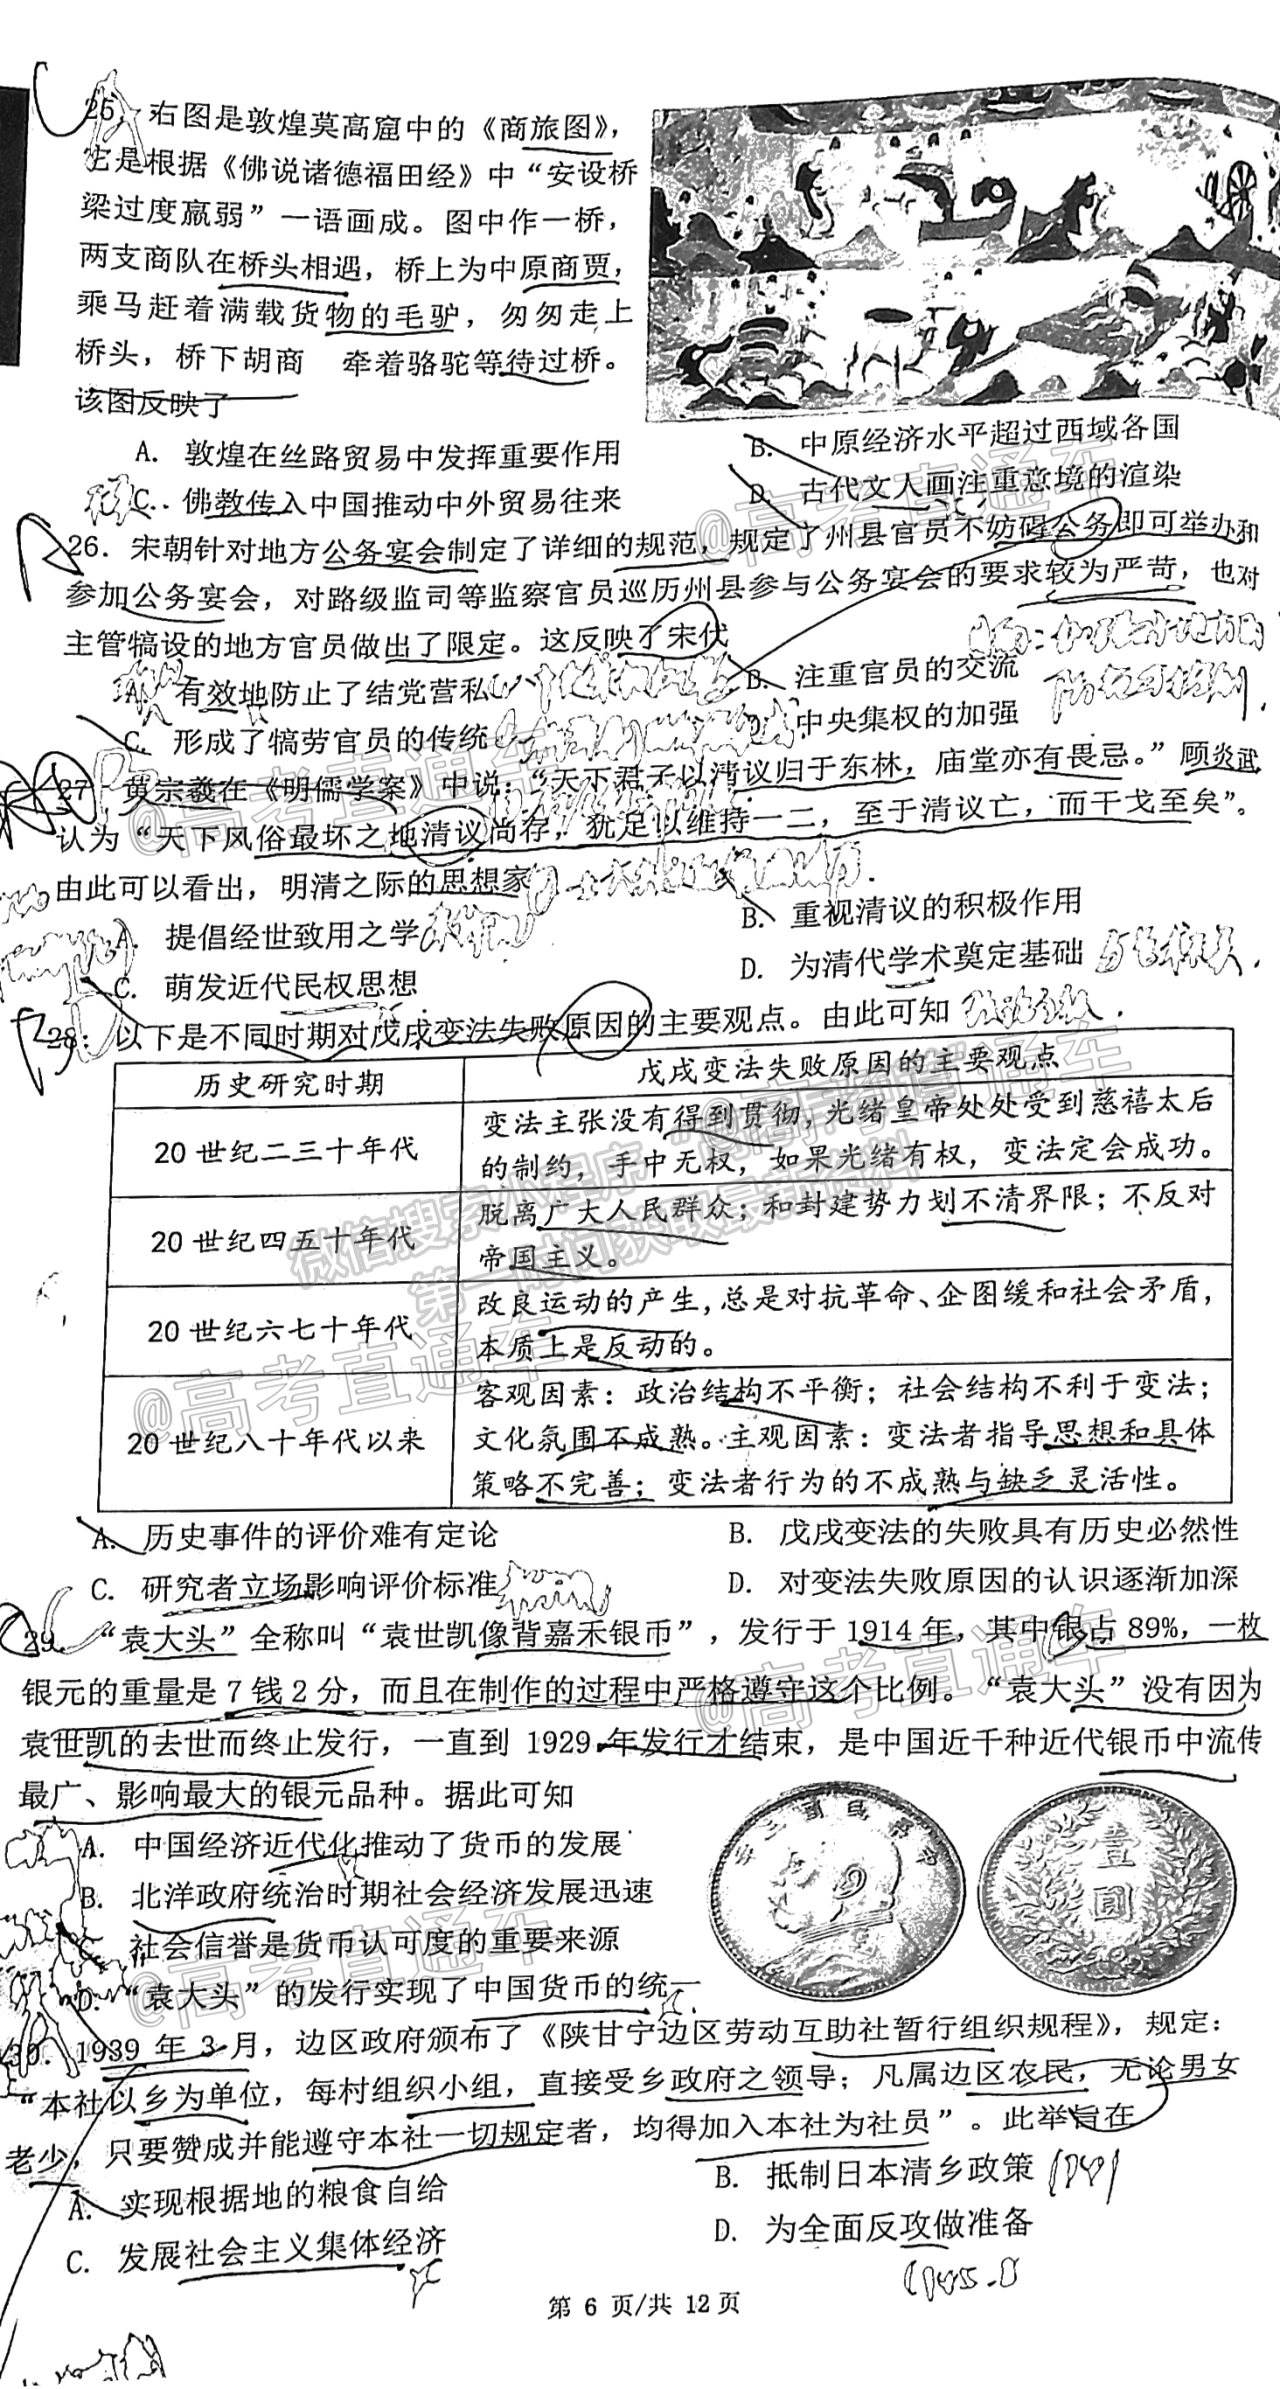 25. 右图是敦煌莫高窟中的《商旅图》，
它是根据《佛说诸德福田经》中“安设桥
梁过度羸弱”一语画成。图中作一桥，
两支商队在桥头相遇，桥上为中原商贾，
乘马赶着满载货物的毛驴，匆匆走上
桥头，桥下胡商 牵着骆驼等待过桥。
该图反映了
A. 敦煌在丝路贸易中发挥重要作用
B. 中原经济水平超过西域各国
C. 佛教传入中国推动中外贸易往来
D. 古代文人画注重意境的渲染
26. 宋朝针对地方公务宴会制定了详细的规范，规定了州县官员不妨碍公务即可举办和
参加公务宴会，对路级监司等监察官员巡历州县参与公务宴会的要求较为严苛，也对
主管犒设的地方官员做出了限定。这反映了宋代
A. 有效地防止了结党营私
B. 注重官员的交流
C. 形成了犒劳官员的传统
D. 中央集权的加强
27. 黄宗羲在《明儒学案》中说：“天下君子以清议归于东林，庙堂亦有畏忌。”顾炎武
认为“天下风俗最坏之地清议尚存，犹足以维持一二，至于清议亡，而干戈至矣”。
由此可以看出，明清之际的思想家
A. 提倡经世致用之学
B. 重视清议的积极作用
C. 萌发近代民权思想
D. 为清代学术奠定基础
28. 以下是不同时期对戊戌变法失败原因的主要观点。由此可知
历史研究时期
戊戌变法失败原因的主要观点
20世纪二三十年代
变法主张没有得到贯彻，光绪皇帝处处受到慈禧太后
的制约，手中无权，如果光绪有权，变法定会成功。
20世纪四五十年代
脱离广大人民群众；和封建势力划不清界限；不反对
帝国主义。
20世纪六七十年代
改良运动的产生，总是对抗革命、企图缓和社会矛盾，
本质上是反动的。
20世纪八十年代以来
客观因素：政治结构不平衡；社会结构不利于变法；
文化氛围不成熟。主观因素：变法者指导思想和具体
策略不完善；变法者行为的不成熟与缺乏灵活性。
A. 历史事件的评价难有定论
B. 戊戌变法的失败具有历史必然性
C. 研究者立场影响评价标准
D. 对变法失败原因的认识逐渐加深
29. “袁大头”全称叫“袁世凯像背嘉禾银币”，发行于1914年，其中银占89%，一枚
银元的重量是7钱2分，而且在制作的过程中严格遵守这个比例。“袁大头”没有因为
袁世凯的去世而终止发行，一直到1929年发行才结束，是中国近千种近代银币中流传
最广、影响最大的银元品种。据此可知
A. 中国经济近代化推动了货币的发展
B. 北洋政府统治时期社会经济发展迅速
C. 社会信誉是货币认可度的重要来源
D. “袁大头”的发行实现了中国货币的统一
壹
圆
30. 1939年3月，边区政府颁布了《陕甘宁边区劳动互助社暂行组织规程》，规定：
“本社以乡为单位，每村组织小组，直接受乡政府之领导；凡属边区农民，无论男女
老少，只要赞成并能遵守本社一切规定者，均得加入本社为社员”。此举旨在
A. 实现根据地的粮食自给
B. 抵制日本清乡政策
C. 发展社会主义集体经济
D. 为全面反攻做准备
第 6 页/共 12页
@高考直通车
@高考直通车
微信搜索小程序“高考早知道”
第一时间获取最新资料
@高考直通车
@高考直通车
@高考直通车